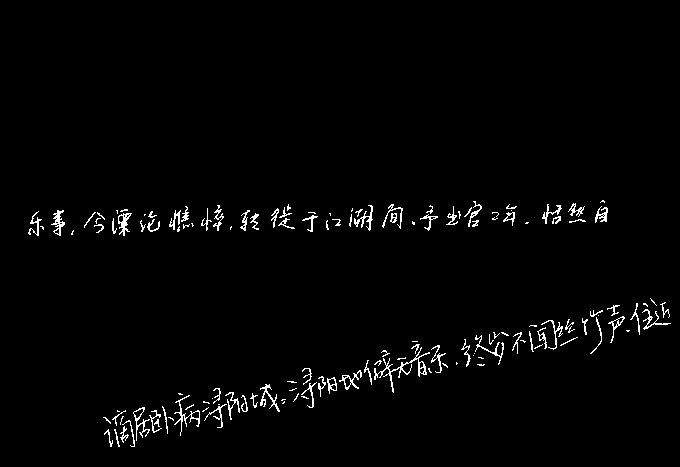 乐事,今漂沦憔悴,转徙于江湖间、予出官二年.恬然自
谪居卧病浔阳城。浔阳地僻无音乐.终岁不闻丝竹声.住近